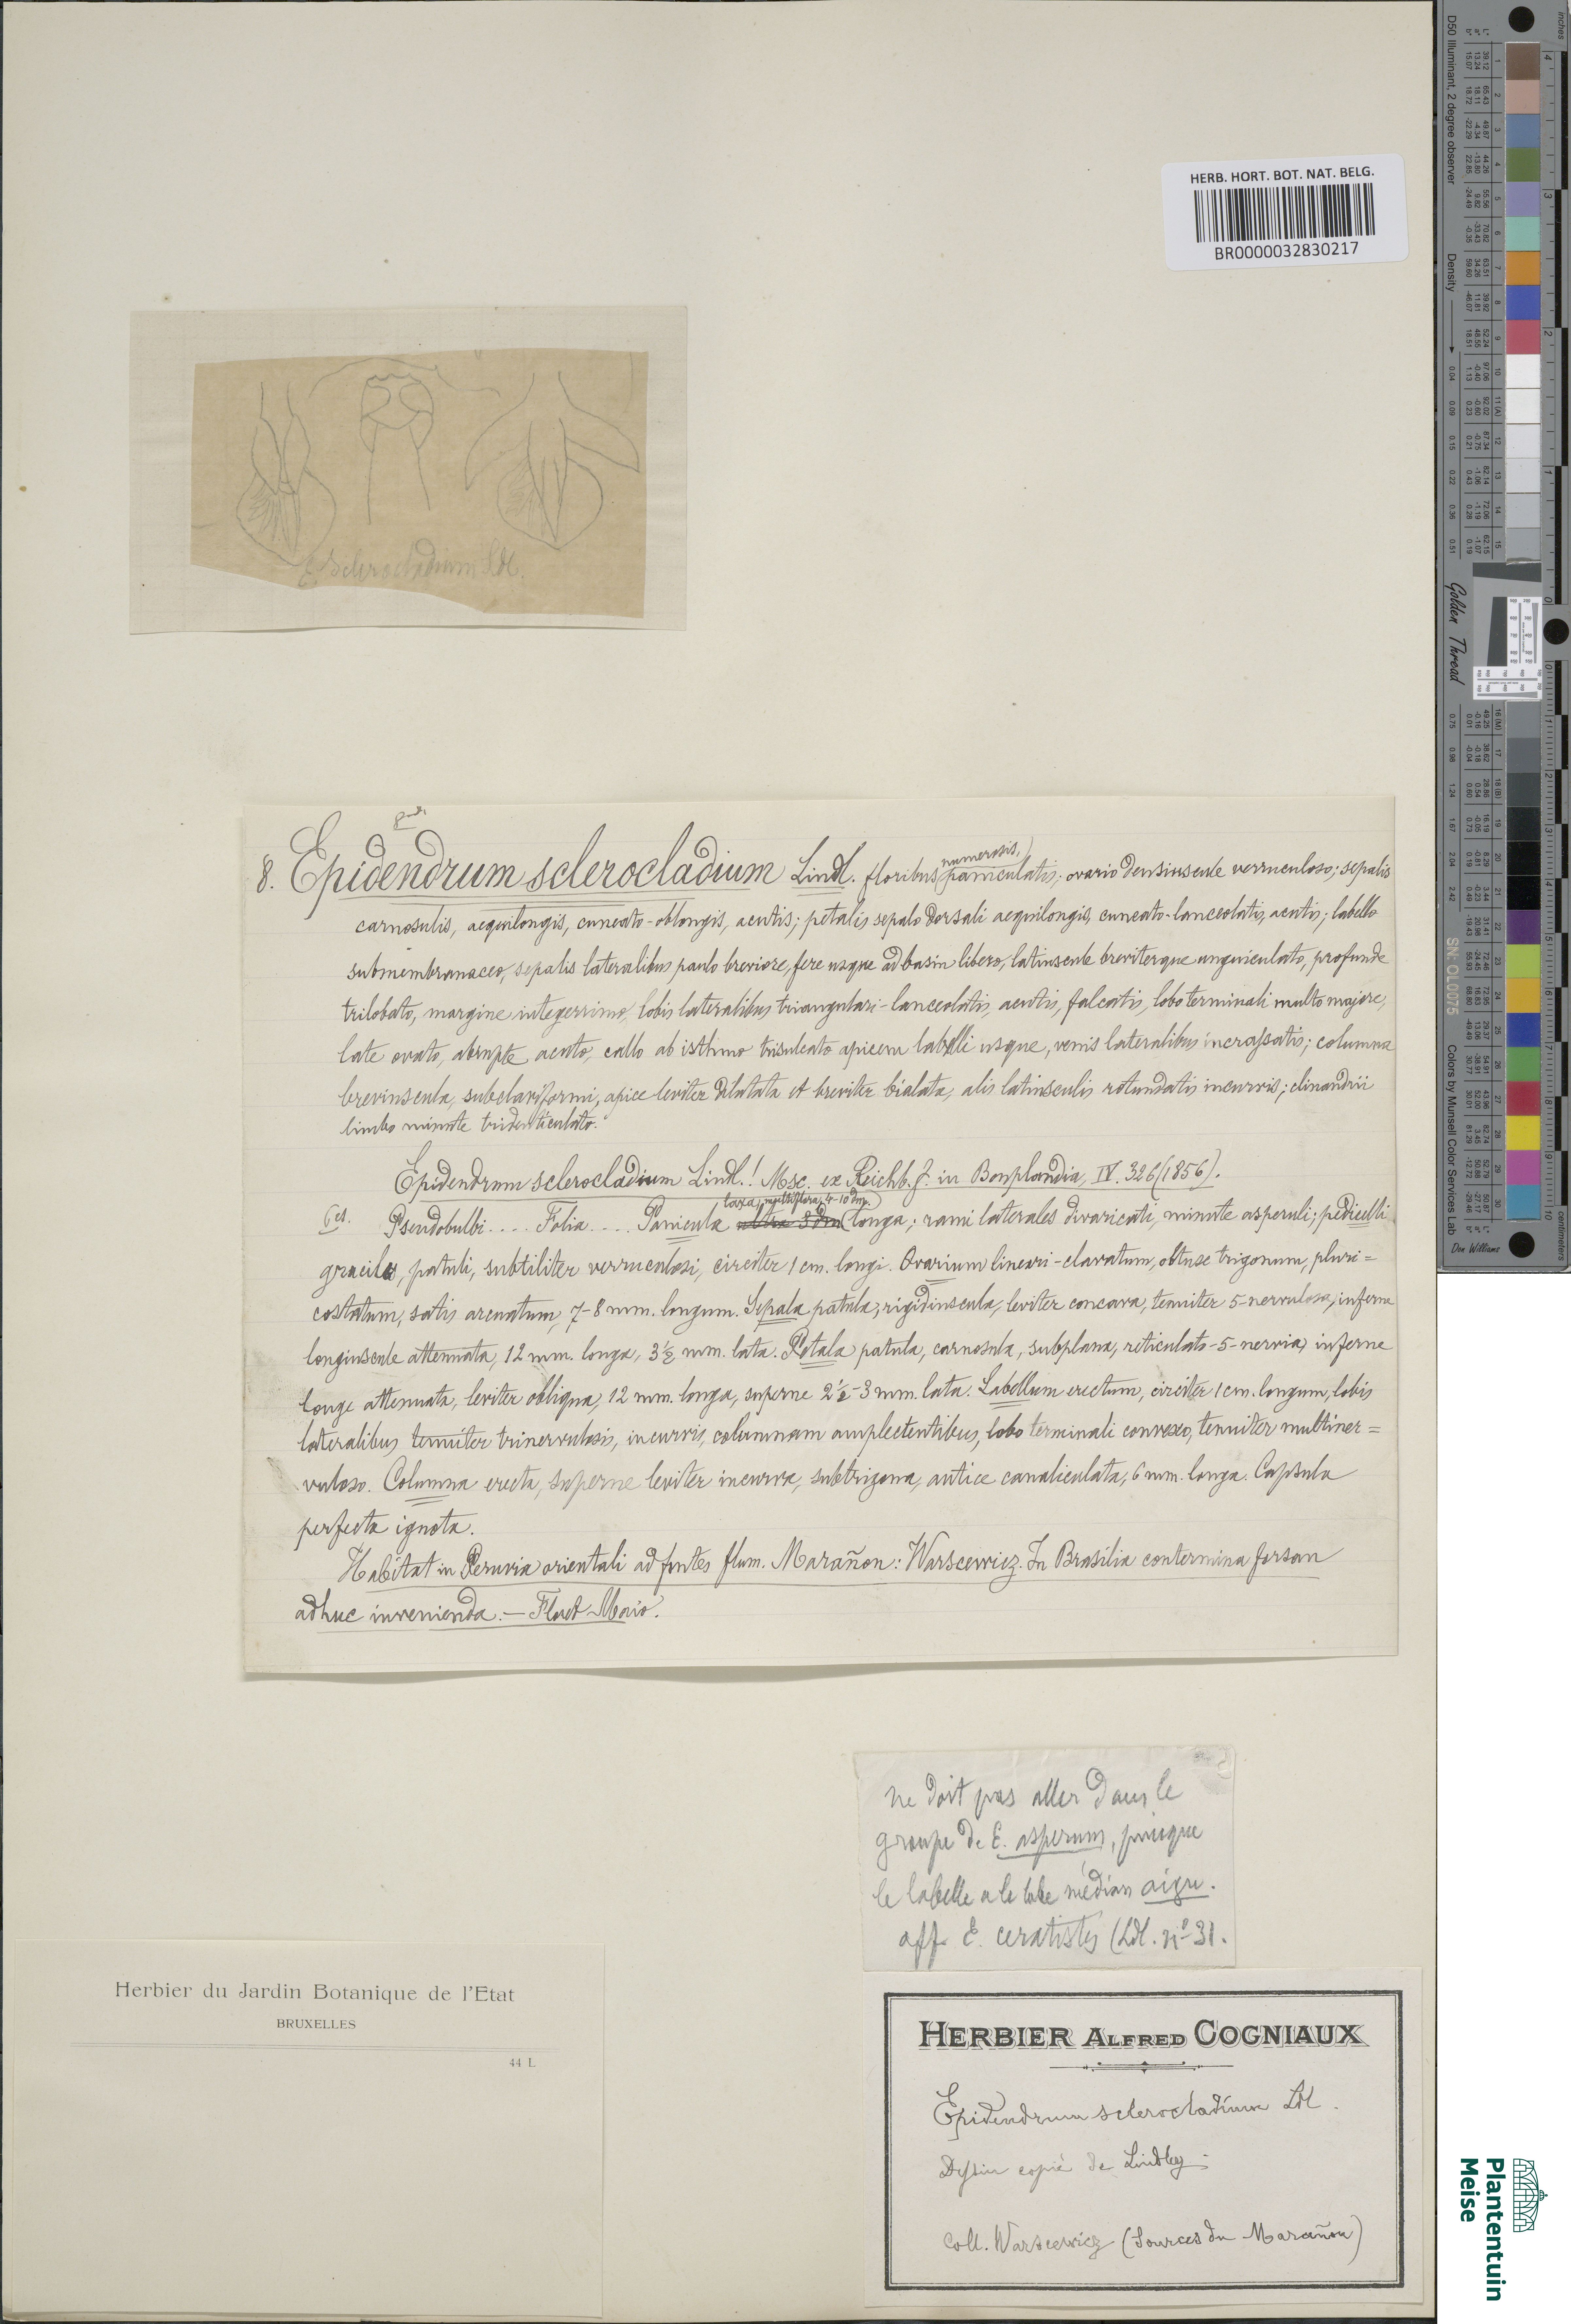 HERB. HORT. BOT. NAT. BELG.
BR0000032830217
E. sclerocladium Ldl.
8. Epidendrum sclerocladium Lindl. floribus numerosis, paniculatis; ovario densiuscule verruculoso; sepalis
carnosulis, aequilongis, cuneato-oblongis, acutis; petalis sepalo dorsali aequilongis, cuneato-lanceolatis, acutis; labello
submembranaceo, sepalis lateralibus paulo breviore, fere usque ad basin libero, latiuscule breviterque unguiculato, profunde
trilobato, margine integerrimo, lobis lateralibus triangulari-lanceolatis, acutis, falcatis, lobo terminali multo majore,
late ovato, abrupte acuto, callo ab isthmo trisulcato apicem labelli usque, venis lateralibus incrassatis; columna
breviuscula, subclaviformi, apice leviter dilatata et breviter bialata, alis latiusculis rotundatis incurvis; clinandrii
limbo minute tridenticulato.
Epidendrum sclerocladium Lindl.! Msc. ex Reichb. f. in Bonplandia, IV. 326 (1856).
Pseudobulbi.... Folia.... Panicula laxa, multiflora, 4-10 dm. longa; rami laterales divaricati, minute asperuli; pedicelli
graciles, patuli, subtiliter verruculosi, circiter 1 cm. longi. Ovarium lineari-clavatum, obtuse trigonum, pluri=
costatum, satis arcuatum, 7-8 mm. longum. Sepala patula, rigidiuscula, leviter concava, tenuiter 5-nervulosa, inferne
longiuscule attenuata, 12 mm. longa, 3½ mm. lata. Petala patula, carnosula, subplana, reticulato-5-nervia, inferne
longe attenuata, leviter obliqua, 12 mm. longa, superne 2½-3 mm. lata. Labellum erectum, circiter 1 cm. longum, lobis
lateralibus tenuiter trinervulosis, incurvis, columnam amplectentibus, lobo terminali convexo, tenuiter multiner=
vuloso. Columna erecta, superne leviter incurva, subtrigona, antice canaliculata, 6 mm. longa. Capsula
perfecta ignota.
Habitat in Peruvia orientali ad fontes flum. Marañon: Warscewicz. In Brasilia contermina forsan
adhuc invenienda.— Floret Maio.
ne doit pas aller dans le
groupe de E. asperum, puisque
le labelle a le lobe médian aigu.
aff. E. ceratistes (Ldl. nº 31.
Herbier du Jardin Botanique de l'Etat
BRUXELLES
44 L
HERBIER ALFRED COGNIAUX
Epidendrum sclerocladium Ldl.
Dessin copié de Lindley
Coll. Warscewicz (Sources du Marañon)
D50 Illuminant, 2 degree observer
Density
Golden Thread
SN: OL0075
Colors by Munsell Color Services Lab
Don Williams
inches
centimeters
Plantentuin
Meise